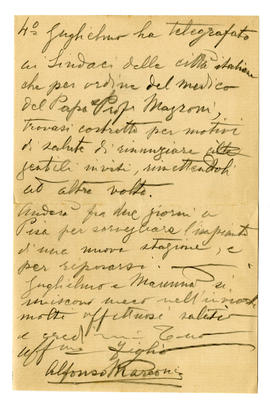 4º Guglielmo ha telegrafato
ai Sindaci delle città italiane
che per ordine del medico
del Papa Prof. Mazzoni,
trovasi costretto per motivi
di salute di rinunziare alle
gentili inviti, rimettendoli
ad altra volta.
Andrà fra due giorni a
Pisa per sorvegliare l'impianto
d'una nuova stazione, e
per riposarsi.
Guglielmo e Mamma si
uniscono meco nell'inviarle
molti affettuosi saluti
e credimi Tuo
affmo figlio
Alfonso Marconi